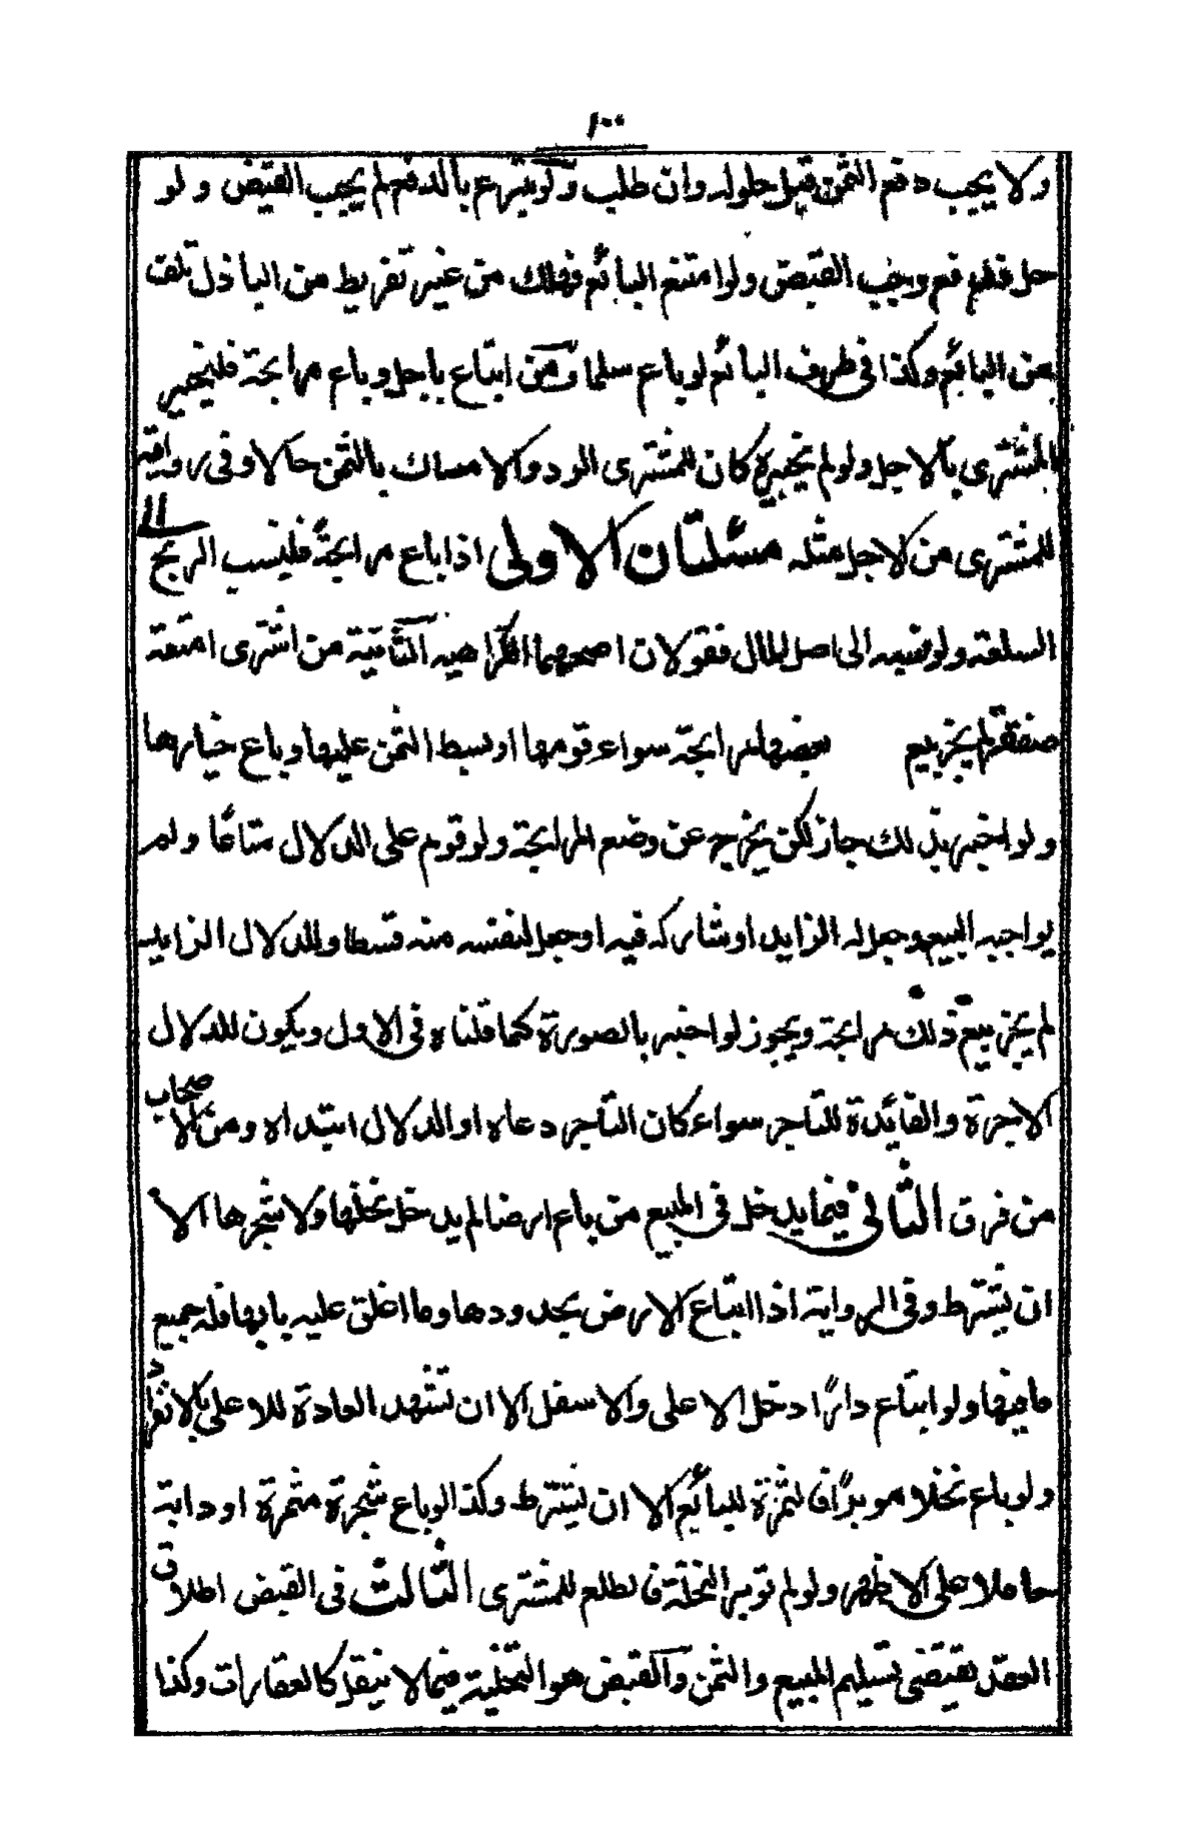 ١٠٠
ولا يجب دفع الثمن قبل حلوله وان طلب ولو تبرع بالدفع لم يجب القبض ولو
حل فدفع وجب القبض ولو امتنع البائع فهلك من غير تفريط من الباذل تلف
من البائع وكذا فى طرف البائع لو باع سلما ومن ابتاع باجل وباع مرابحة فليخبر
المشترى بالاجل ولو لم يخبره كان للمشترى الرد والامساك بالثمن حالا وفى رواية
للمشترى من الاجل مثله مسئلتان الاولى اذا باع مرابحة فلينسب الربح الى
السلعة ولو نسبه الى اصل المال فقولان اصحهما الكراهيه الثانية من اشترى امتعة
صفقة لم يجز بيع بعضها مرابحة سواء قومها او بسط الثمن عليها وباع خيارها
ولو اخبر بذلك جاز لكن يخرج عن وضع المرابحة ولو قوم على الدلال متاعا ولم
يواجبه البيع وجعل له الزايد او شاركه فيه او جعل لنفسه منه قسطا وللدلال الزايد
لم يجز بيع ذلك مرابحة ويجوز لو اخبر بالصورة كما قلناه فى الاول ويكون للدلال
الاجرة والفائدة للتاجر سواء كان التاجر دعاه او الدلال ابتداه ومن الاصحاب
من فرق الثانى فيما يدخل فى المبيع من باع ارضا لم يدخل نخلها ولا شجرها الا
ان يشترط وفى الرواية اذا ابتاع الارض بحدودها وما اغلق عليه بابها فله جميع
ما فيها ولو ابتاع دارًا دخل الاعلى والاسفل الا ان تشهد العادة للاعلى بالانفراد
ولو باع نخلا موبرًا فالثمرة للبائع الا ان يشترط وكذا لو باع شجرة مثمرة او دابة
حاملا على الاظهر ولو لم توبر النخلة فالطلع للمشترى الثالث فى القبض اطلاق
العقد يقتضى تسليم المبيع والثمن والقبض هو التخلية فيما لا ينقل كالعقارات وكذا